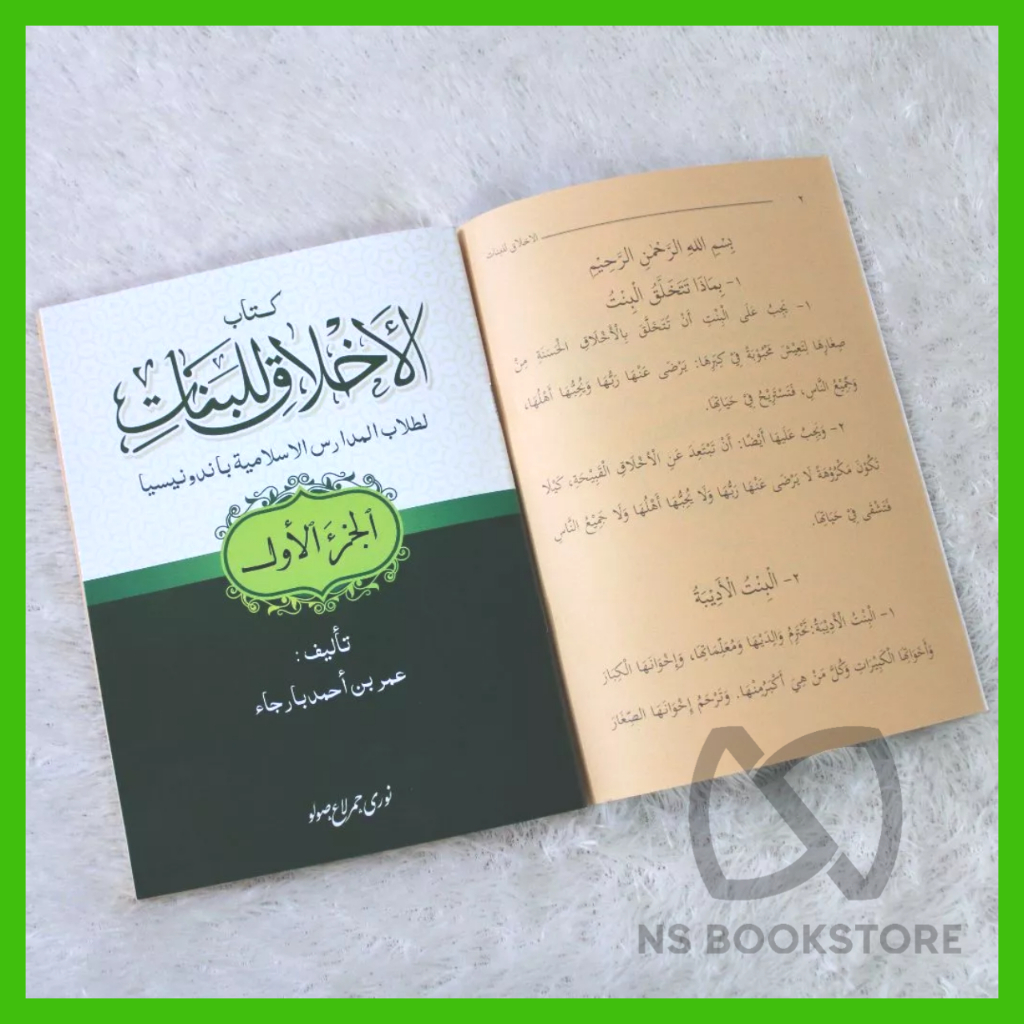 كتاب
الأخلاق للبنات
لطلاب المدارس الاسلامية باندونيسيا
الجزء الأول
تأليف :
عمر بن أحمد بارجاء
٢
الاخلاق للبنات
بِسْمِ اللهِ الرَّحْمٰنِ الرَّحِيْمِ
١- بِمَاذَا تَتَخَلَّقُ الْبِنْتُ
١- يَجِبُ عَلَى الْبِنْتِ أَنْ تَتَخَلَّقَ بِالْأَخْلَاقِ الْحَسَنَةِ مِنْ
صِغَارِهَا لِتَعِيْشَ مَحْبُوْبَةً فِيْ كِبَرِهَا: يَرْضَى عَنْهَا رَبُّهَا وَيُحِبُّهَا أَهْلُهَا،
وَجَمِيْعُ النَّاسِ، فَتَسْتَرِيْحُ فِيْ حَيَاتِهَا.
٢- وَيَجِبُ عَلَيْهَا أَيْضًا: أَنْ تَبْتَعِدَ عَنِ الْأَخْلَاقِ الْقَبِيْحَةِ، كَيْلَا
تَكُوْنَ مَكْرُوْهَةً لَا يَرْضَى عَنْهَا رَبُّهَا وَلَا يُحِبُّهَا أَهْلُهَا وَلَا جَمِيْعُ النَّاسِ
فَتَشْقَى فِيْ حَيَاتِهَا.
٢- الْبِنْتُ الْأَدِيْبَةُ
١- الْبِنْتُ الْأَدِيْبَةُ: تَحْتَرِمُ وَالِدَيْهَا وَمُعَلِّمَاتِهَا، وَإِخْوَانَهَا الْكِبَارَ
وَأَخَوَاتِهَا الْكَبِيْرَاتِ وَكُلَّ مَنْ هِيَ أَكْبَرُ مِنْهَا. وَتَرْحَمُ إِخْوَانَهَا الصِّغَارَ
NS BOOKSTORE